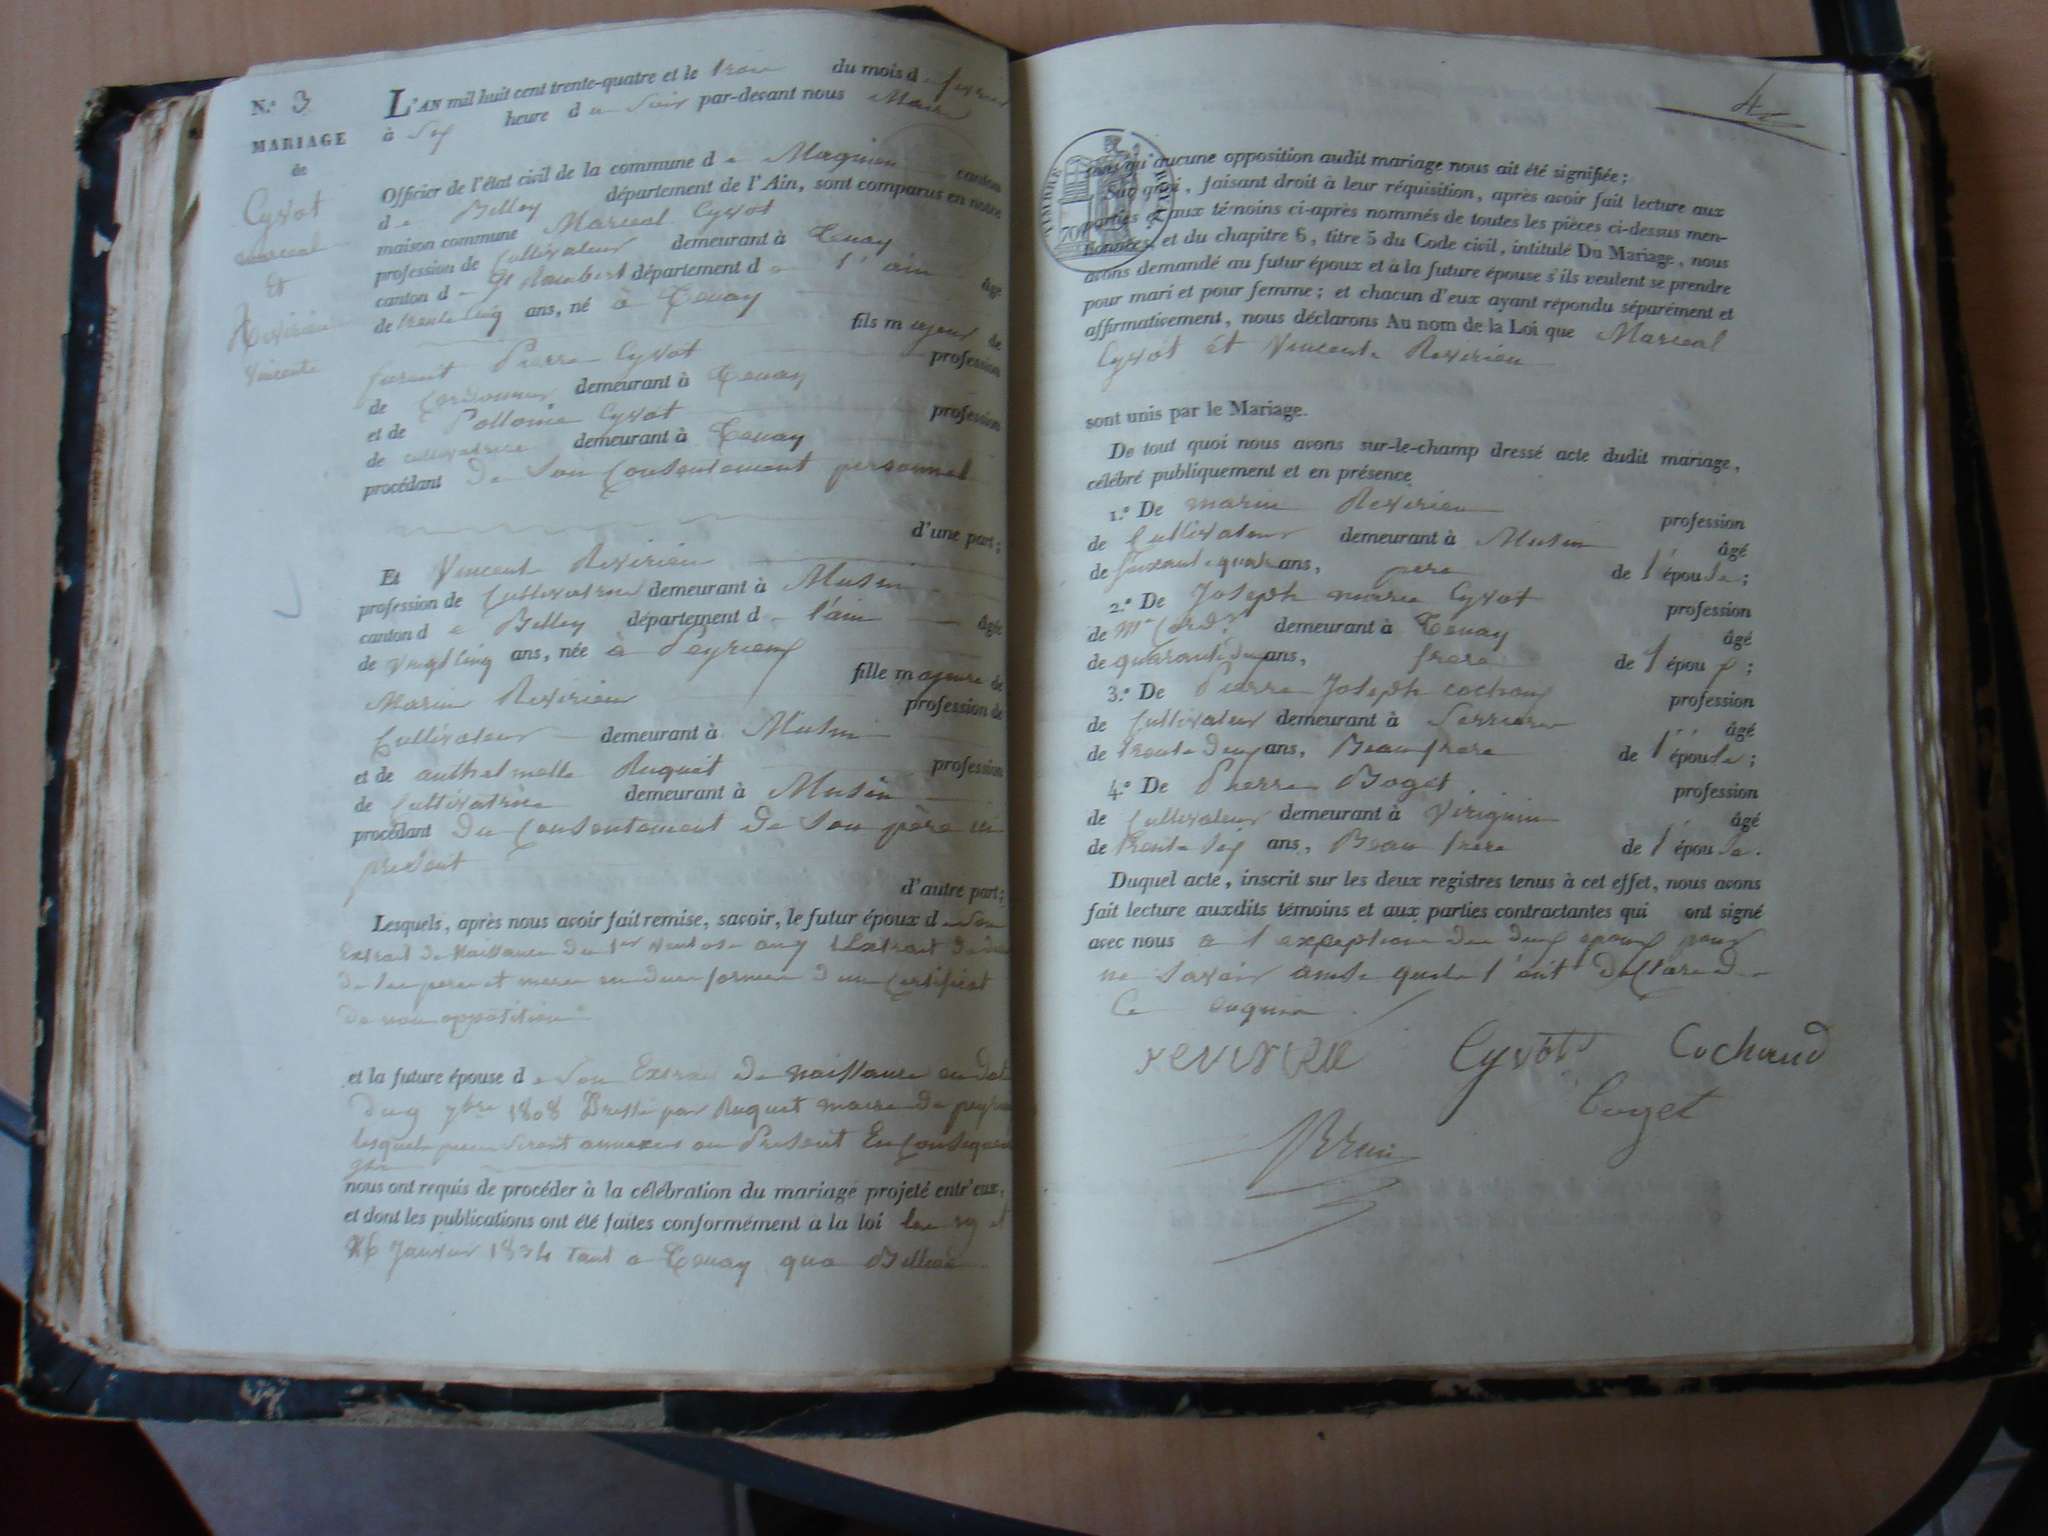 N.º 3
MARIAGE
de
Cyvot
marceal
et
Revirieu
vincente
L'AN mil huit cent trente-quatre et le trois du mois de fevrier
à Six heure du Soir par-devant nous Maire
Officier de l'état civil de la commune de Magnieu canton
de Belley département de l'Ain, sont comparus en notre
maison commune Marceal Cyvot
profession de Cultivateur demeurant à Tenay
canton de St Rambert département de l'ain âgé
de trente cinq ans, né à Tenay
fils majeur de
furent Pierre Cyvot profession
de Cordonnier demeurant à Tenay
et de Pollonie Cyvot profession
de cultivatrice demeurant à Tenay
procédant de Son Consentement personnel
d'une part;
Et Vincent Revirieu
profession de Cultivatrice demeurant à Musin
canton de Belley département de l'ain âgée
de vingt cinq ans, née à Peyrieux
fille majeure de
Marin Revirieu profession de
Cultivateur demeurant à Musin
et de anthelmette Ruquet profession
de Cultivatrice demeurant à Musin
procédant du Consentement de Son père ici
présent
d'autre part;
Lesquels, après nous avoir fait remise, savoir, le futur époux de Son
Extrait de Naissance du 1er Ventose an 7 Extrait de
de Ses pere et mere en due forme d'un Certificat
de non opposition
et la future épouse de Son Extrait de naissance en date
du 9 7bre 1808 Dressé par Ruquet maire de peyrieux
lesquels Seront annexés au Présent En Consequence
nous ont requis de procéder à la célébration du mariage projeté entr'eux,
et dont les publications ont été faites conformément à la loi les 19 et
26 Janvier 1834 Tant a Tenay que
4
TIMBRE ROYAL
70
sans qu'aucune opposition audit mariage nous ait été signifiée;
Sur quoi, faisant droit à leur réquisition, après avoir fait lecture aux
parties et aux témoins ci-après nommés de toutes les pièces ci-dessus men-
tionnées, et du chapitre 6, titre 5 du Code civil, intitulé Du Mariage, nous
avons demandé au futur époux et à la future épouse s'ils veulent se prendre
pour mari et pour femme; et chacun d'eux ayant répondu séparément et
affirmativement, nous déclarons Au nom de la Loi que Marceal
Cyvot et Vincente Revirieu
sont unis par le Mariage.
De tout quoi nous avons sur-le-champ dressé acte dudit mariage,
célébré publiquement et en présence
1.º De marin Revirieu profession
de Cultivateur demeurant à Musin âgé
de Soixante quatre ans, pere de l'épouse;
2.º De Joseph marie Cyvot profession
de Md Cordr demeurant à Tenay âgé
de quarante deux ans, frere de l'époux;
3.º De Pierre Joseph cochoud profession
de Cultivateur demeurant à Serriere âgé
de trente deux ans, Beau frere de l'épouse;
4.º De Pierre Boget profession
de Cultivateur demeurant à Virignin âgé
de trente Six ans, Beau frere de l'épouse.
Duquel acte, inscrit sur les deux registres tenus à cet effet, nous avons
fait lecture auxdits témoins et aux parties contractantes qui ont signé
avec nous a l'exception des deux epoux pour
ne Savoir ainsi quils l'ont déclaré de
Ce enquis
revirieu Cyvot Cochoud
boget